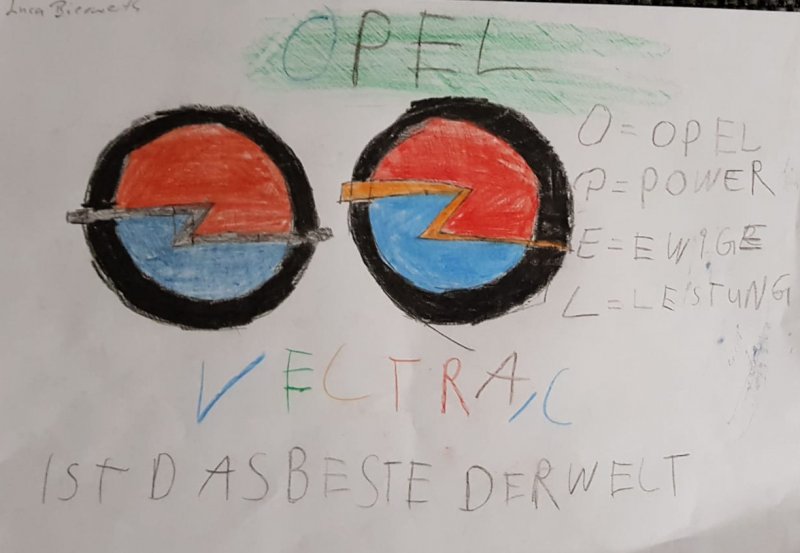 Luca
OPEL
O=OPEL
P=POWER
E=EWIGE
L=LEISTUNG
VECTRA,C
IST DASBESTE DERWELT